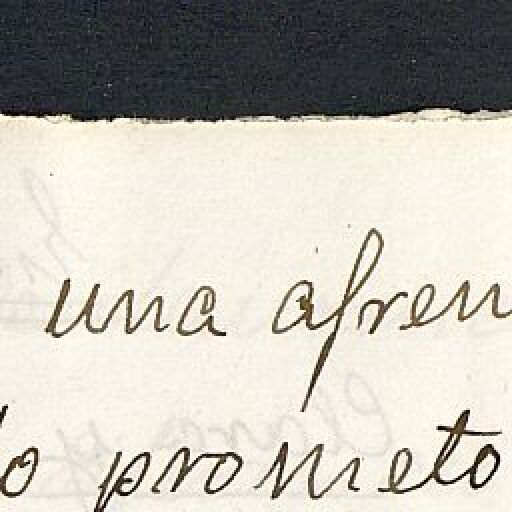 una afren
lo prometo